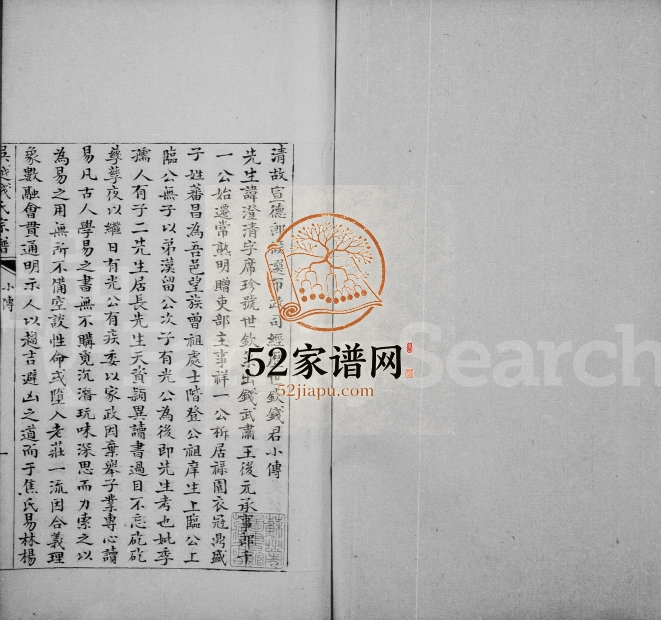 清故宣德郎候選布政司經歷世欽錢君小傳
先生諱澄清字席珍號世欽系出錢武肅王後元承事郎千
一公始遷常熟明贈吏部主事祥一公柝居祿園衣冠鼎盛
子姓蕃昌為吾邑望族曾祖處士階登公祖庠生上臨公上
臨公無子以弟漢留公次子有光公為後即先生考也妣季
孺人有子二先生居長先生天資穎異讀書過目不忘矻矻
孳孳夜以繼日有光公有疾委以家政因棄舉子業專心讀
易凡古人學易之書無不購覓沉潛玩味深思而力索之以
為易之用無所不備空談性命或墮入老莊一流因合義理
象數融會貫通明示人以趨吉避凶之道而于焦氏易林楊
吳越錢氏宗譜
小傳
一
52家谱网
52jiapu.com
Search